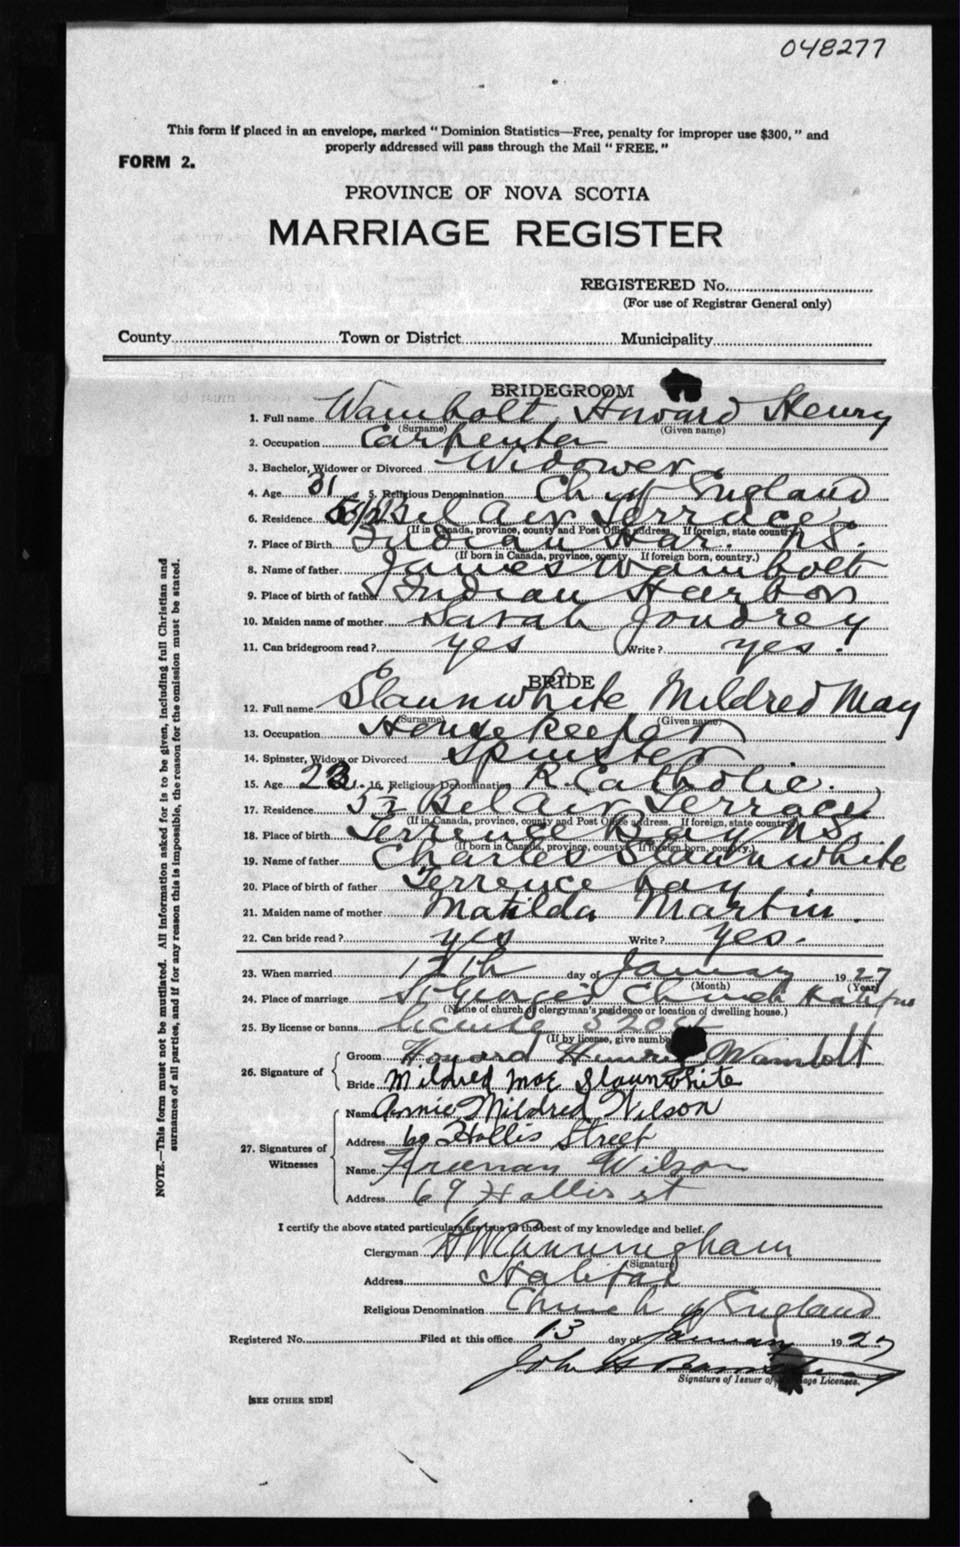 048277
This form if placed in an envelope, marked "Dominion Statistics—Free, penalty for improper use $300," and
properly addressed will pass through the Mail "FREE."
FORM 2.
PROVINCE OF NOVA SCOTIA
MARRIAGE REGISTER
REGISTERED No.
(For use of Registrar General only)
County Town or District Municipality
BRIDEGROOM
1. Full name Wambolt Howard Henry
(Surname) (Given name)
2. Occupation Carpenter
3. Bachelor, Widower or Divorced Widower
4. Age 31 5. Religious Denomination Ch of England
6. Residence Bel Air Terrace
(If in Canada, province, county and Post Office address. If foreign, state country)
7. Place of Birth Indian Har. NS.
(If born in Canada, province, county. If foreign born, country.)
8. Name of father James Wambolt
9. Place of birth of father Indian Harbor
10. Maiden name of mother Sarah Joudrey
11. Can bridegroom read? yes Write? yes.
BRIDE
12. Full name Slaunwhite Mildred May
(Surname) (Given name)
13. Occupation Housekeeper
14. Spinster, Widow or Divorced Spinster
15. Age 16. Religious Denomination R. Catholic.
17. Residence 53 Bel Air Terrace
(If in Canada, province, county and Post Office address. If foreign, state country)
18. Place of birth Terrence Bay NS.
(If born in Canada, province, county. If foreign born, country.)
19. Name of father Charles Slaunwhite
20. Place of birth of father Terrence Bay
21. Maiden name of mother Matilda Martin.
22. Can bride read? yes Write? yes.
23. When married 12th day of January 1927
(Month) (Year)
24. Place of marriage St George's Church Halifax
(Name of church or clergyman's residence or location of dwelling house.)
25. By license or banns license
(If by license, give number)
26. Signature of
Groom Howard Henry Wambolt
Bride Mildred Mae Slaunwhite
27. Signatures of Witnesses
Name Annie Mildred Wilson
Address 69 Hollis Street
Name Freeman Wilson
Address 69 Hollis st
I certify the above stated particulars are true to the best of my knowledge and belief.
Clergyman H W Cunningham
(Signature)
Address Halifax
Religious Denomination Church of England
Registered No. Filed at this office 13 day of January 1927
John H
Signature of Issuer of Marriage Licenses.
[SEE OTHER SIDE]
NOTE.—This form must not be mutilated. All information asked for is to be given, including full Christian and
surnames of all parties, and if for any reason this is impossible, the reason for the omission must be stated.